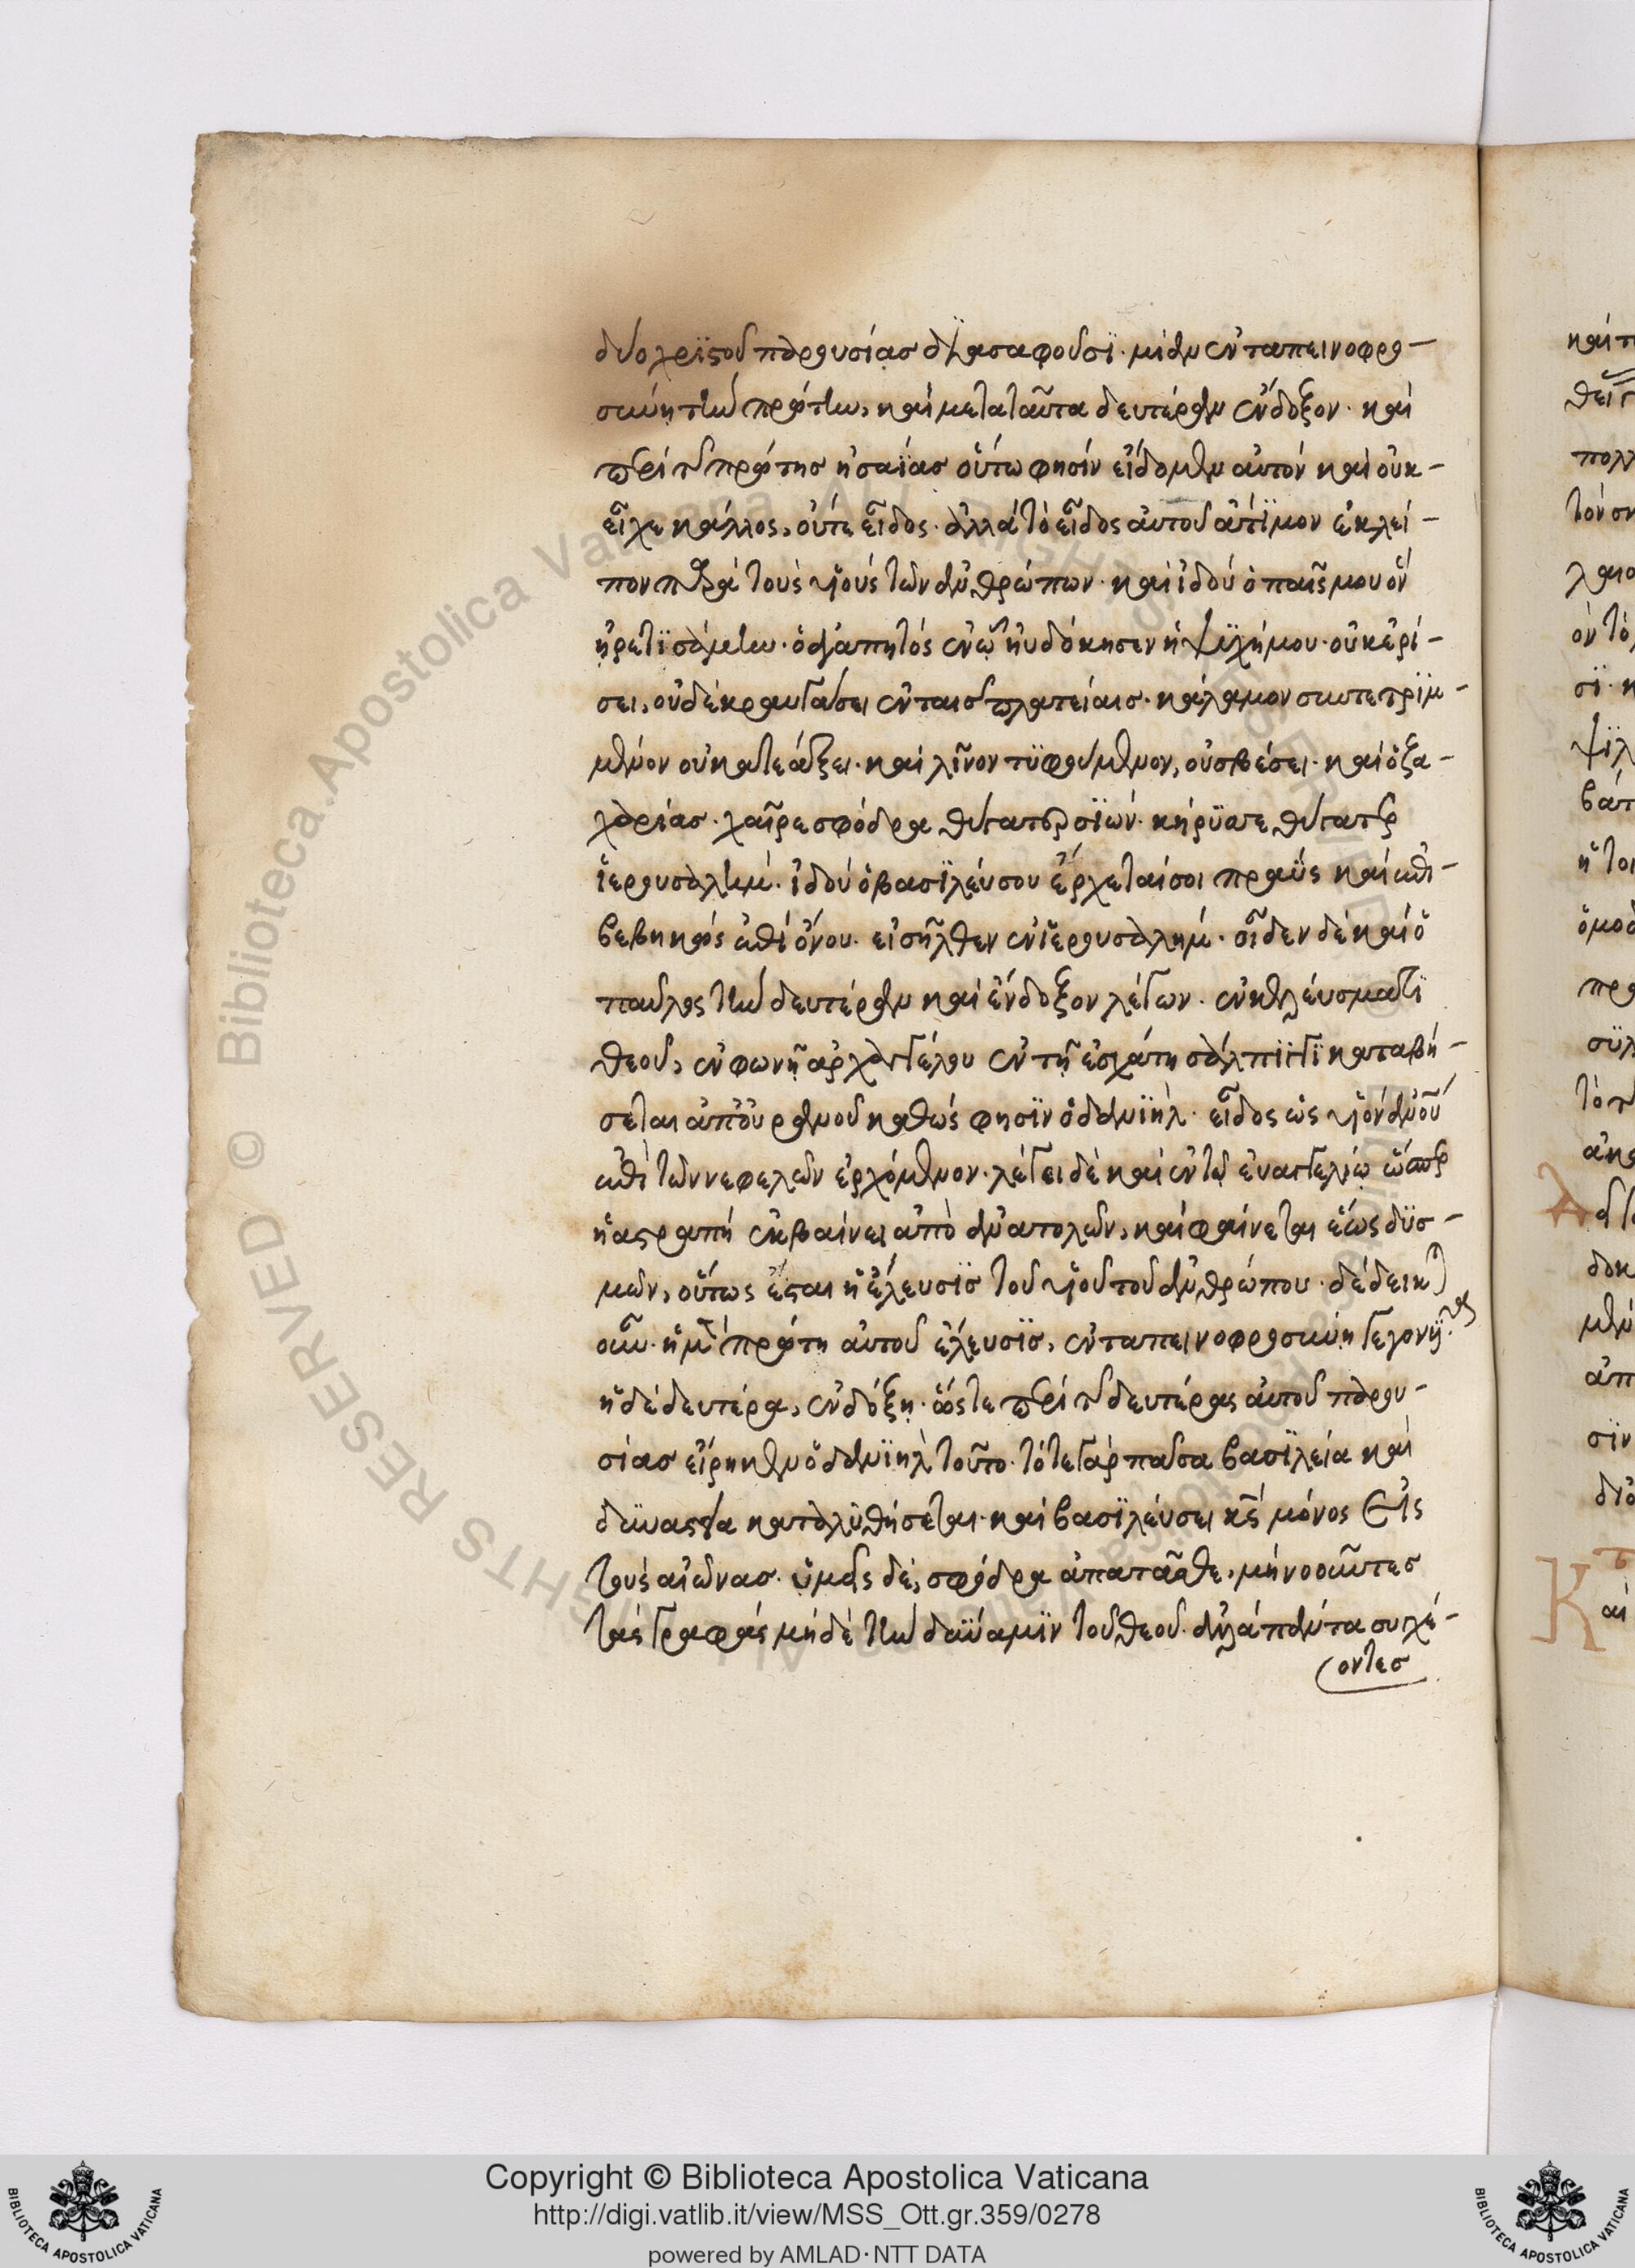 δύο χριϊστοῦ παρουσίας διασαφοῦσϊ· μίαν ἐν ταπεινοφρο-
σύνη τὴν πρώτην, καὶ μετα ταῦτα δευτέραν ἔνδοξον· καὶ
περὶ τῆς πρώτης ἡσαΐας οὕτω φησίν εἴδομεν αὐτόν καὶ οὐκ-
εἶχε κάλλος, οὔτε εἶδος· ἀλλὰ τὸ εἶδος αὐτοῦ ἄτϊμον ἐκλεί-
πον παρὰ τοὺς υἱοὺς τῶν ἀνθρώπων· καὶ ἰδού ὁ παῖς μου ὅν
ἡρετϊσάμην· ὁ ἀγαπητός ἐν ὧ ηὐδόκησεν ἡ ψϋχή μου· οὐκ ἐρί-
σει, οὐδὲ κραυγάσει ἐν ταισ πλατείαις· κάλαμον συντετρϊμ-
μένον οὐ κατεάξει· καὶ λῖνον τϋφόμενον, οὐ σβέσει· καὶ ὁ ζα-
χαρίας· χαῖρε σφόδρα θύγατερ σϊών· κήρϋσσε θύγατερ
ἱερουσαλήμ· ἰδού ὁ βασϊλεύς σου ἔρχεταί σοι πραῢς καὶ ἐπι-
βεβηκὼς ἐπὶ ὄνου· εἰσῆλθεν ἐν ἱερουσαλήμ· οἶδεν δὲ καὶ ὁ
παῦλος τὴν δευτέραν καὶ ἔνδοξον λέγων· ἐν κελεύσματϊ
θεοῦ, ἐν φωνῆ ἀρχαγγέλου ἐν τῆ ἐσχάτη σάλπϊγγϊ καταβή-
σεται ἀπ' οὐρανοῦ καθώς φησϊν ὁ δανϊὴλ· εἶδος ὡς υἱὸν ἀνου
ἐπὶ τῶν νεφελῶν ἐρχόμενον· λέγει δὲ καὶ ἐν τῶ εὐαγγελίω ὥσπερ
ἡ αστραπή ἐκβαίνει ἀπὸ ἀνατολῶν, καὶ φαίνεται ἕως δϋσ-
μῶν, οὕτως ἔσται ἡ ἔλευσϊς τοῦ υἱοῦ τοῦ ἀνθρώπου· δέδεικται
οὖν· ἡ μὲν πρώτη αὐτοῦ ἔλευσϊς, ἐν ταπεινοφροσύνη γεγονυῖα·
ἡ δὲ δευτέρα, ἐν δόξη· ὥστε περὶ τῆς δευτέρας αὐτοῦ παρου-
σίας εἴρηκεν ὁ δανϊὴλ τοῦτο· τότε γὰρ πᾶσα βασϊλεία καὶ
δϋναστεία καταλϋθήσεται· καὶ βασϊλεύσει κς μόνος εἰς
τοὺς αἰῶνας· ὑμᾶς δὲ, σφόδρα ἀπατᾶσθε, μὴ νοοῦντες
τὰς γραφὰς μήδὲ τὴν δϋναμϊν τοῦ θεοῦ· ἀλλὰ πάντα συγχέ-
οντες
Copyright © Biblioteca Apostolica Vaticana
http://digi.vatlib.it/view/MSS_Ott.gr.359/0278
powered by AMLAD·NTT DATA